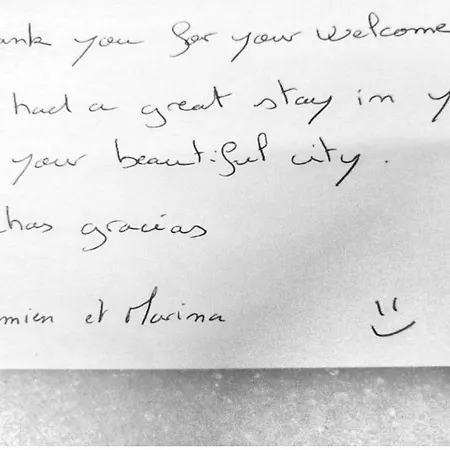 ank you for your welcome
had a great stay in y
your beautiful city.
has gracias
mien et Marina